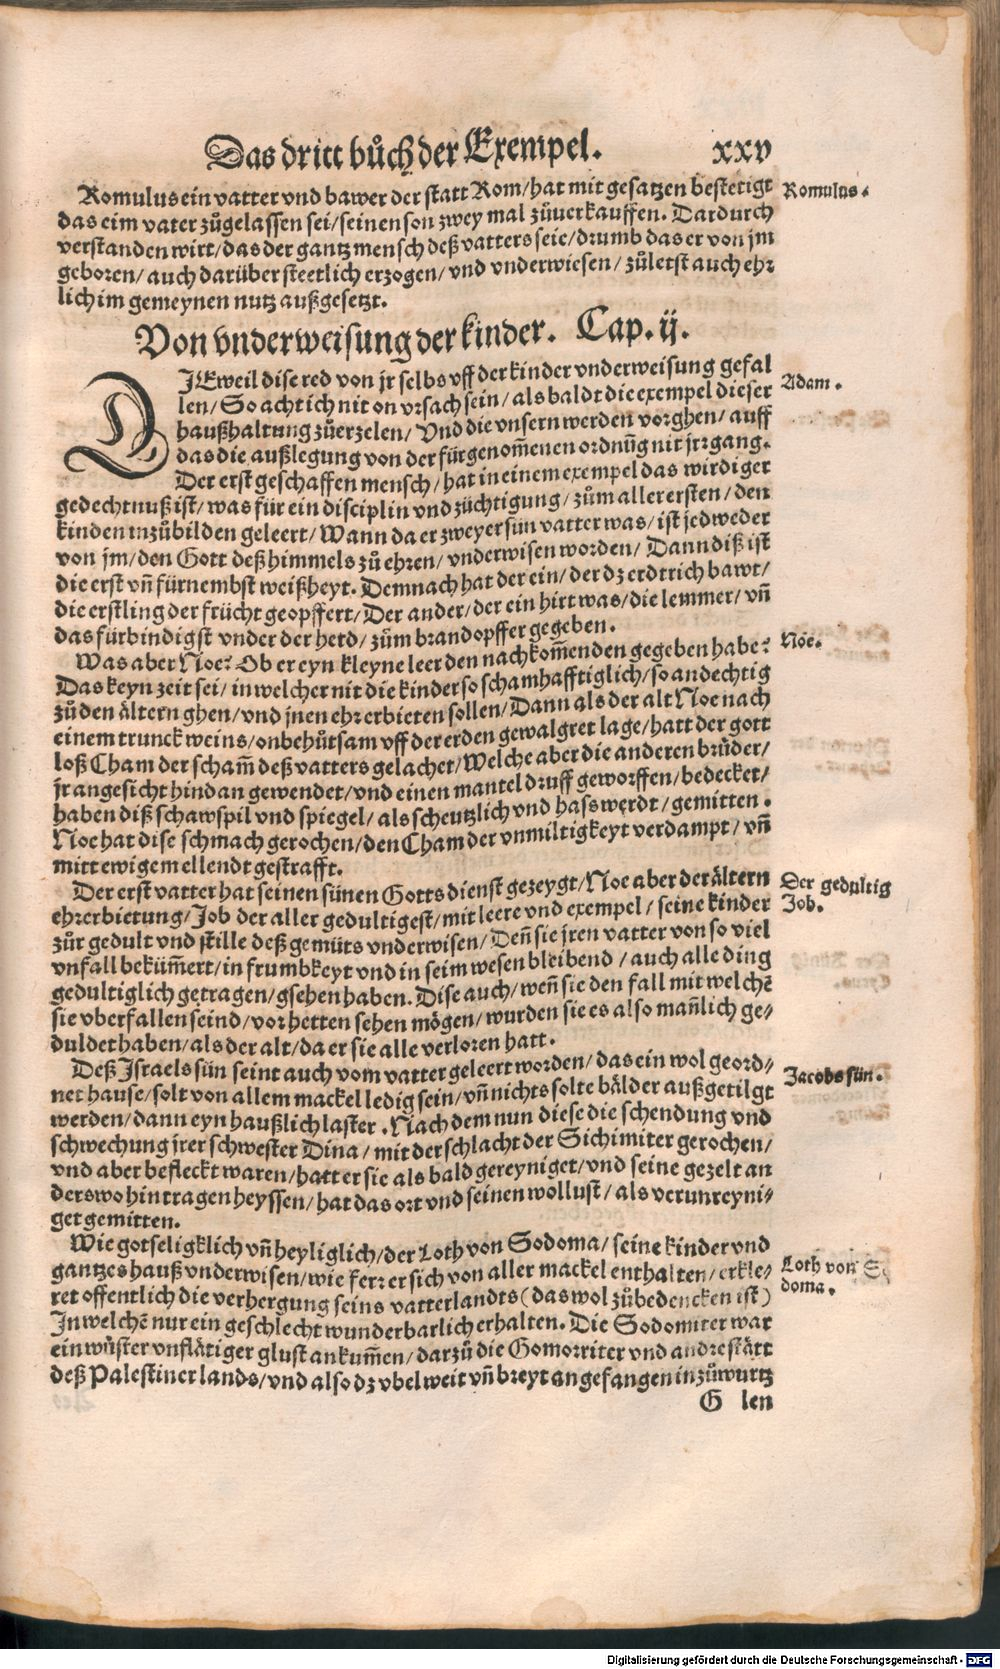 Das dritt bůch der Exempel. xxv
Romulus ein vatter vnd bawer der statt Rom/hat mit gesatzen bestetigt
Romulus.
das eim vater zůgelassen sei/seinen son zwey mal zůuerkauffen. Dardurch
verstanden wirt/das der gantz mensch deß vatters seie/drumb das er von jm
geboren/auch darüber steetlich erzogen/vnd vnderwiesen/zůletst auch ehr
lich im gemeynen nutz außgesetzt.
Von vnderweisung der kinder. Cap. ij.
DIEweil dise red von jr selbs vff der kinder vnderweisung gefal
Adam.
len/So acht ich nit on vrsach sein/als baldt die exempel dieser
haußhaltung zůerzelen/Vnd die vnsern werden vorghen/auff
das die außlegung von der fürgenom̃enen ordnũg nit jrrgang.
Der erst geschaffen mensch/hat in einem exempel das wirdiger
gedechtnuß ist/was für ein disciplin vnd züchtigung/zům aller ersten/den
kinden inzůbilden geleert/Wann da er zweyer sün vatter was/ist jedweder
von jm/den Gott deß himmels zů ehren/vnderwisen worden/Dann diß ist
die erst vñ fürnembst weißheyt. Demnach hat der ein/der dz erdtrich bawt/
die erstling der frücht geopffert/Der ander/der ein hirt was/die lemmer/vñ
das fürbindigst vnder der herd/zům brandopffer gegeben.
Was aber Noe? Ob er eyn kleyne leer den nachkom̃enden gegeben habe?
Noe.
Das keyn zeit sei/in welcher nit die kinder so schamhafftiglich/so andechtig
zů den ältern ghen/vnd jnen ehr erbieten sollen/Dann als der alt Noe nach
einem trunck weins/onbehůtsam vff der erden gewalgret lage/hatt der gott
loß Cham der scham̃ deß vatters gelachet/Welche aber die anderen brüder/
jr angesicht hindan gewendet/vnd einen mantel druff geworffen/bedecket/
haben diß schawspil vnd spiegel/als scheutzlich vnd hasswerdt/gemitten.
Noe hat dise schmach gerochen/den Cham der vnmiltigkeyt verdampt/vñ
mitt ewigem ellendt gestrafft.
Der erst vatter hat seinen sünen Gottsdienst gezeygt/Noe aber der ältern
Der gedultig
ehrerbietung/Job der aller gedultigest/mit leere vnd exempel/seine kinder
Job.
zůr gedult vnd stille deß gemüts vnderwisen/Deñ sie jren vatter von so viel
vnfall beküm̃ert/in frumbkeyt vnd in seim wesen bleibend/auch alle ding
gedultiglich getragen/gsehen haben. Dise auch/weñ sie den fall mit welchẽ
sie vberfallen seind/vor hetten sehen mögen/wurden sie es also mañlich ge⸗
duldet haben/als der alt/da er sie alle verloren hatt.
Deß Israels sün seint auch vom vatter geleert worden/das ein wol geord⸗
Jacobs sün.
net hause/solt von allem mackel ledig sein/vñ nichts solte bälder außgetilgt
werden/dann eyn haußlich laster. Nach dem nun diese die schendung vnd
schwechung jrer schwester Dina/mit der schlacht der Sichimiter gerochen/
vnd aber befleckt waren/hatt er sie als bald gereyniget/vnd seine gezelt an
derswo hin tragen heyssen/hat das ort vnd seinen wollust/als verunreyni⸗
get gemitten.
Wie gotseligklich vñ heyliglich/der Loth von Sodoma/seine kinder vnd
Loth von So
gantzes hauß vnderwisen/wie ferr er sich von aller mackel enthalten/erkle⸗
doma.
ret offentlich die verhergung seins vatterlandts (das wol zůbedencken ist)
In welchẽ nur ein geschlecht wunderbarlich erhalten. Die Sodomiter war
ein wüster vnflätiger glust ankum̃en/darzů die Gomorriter vnd andre stätt
deß Palestiner lands/vnd also dz vbel weit vñ breyt angefangen inzůwurtz
G len